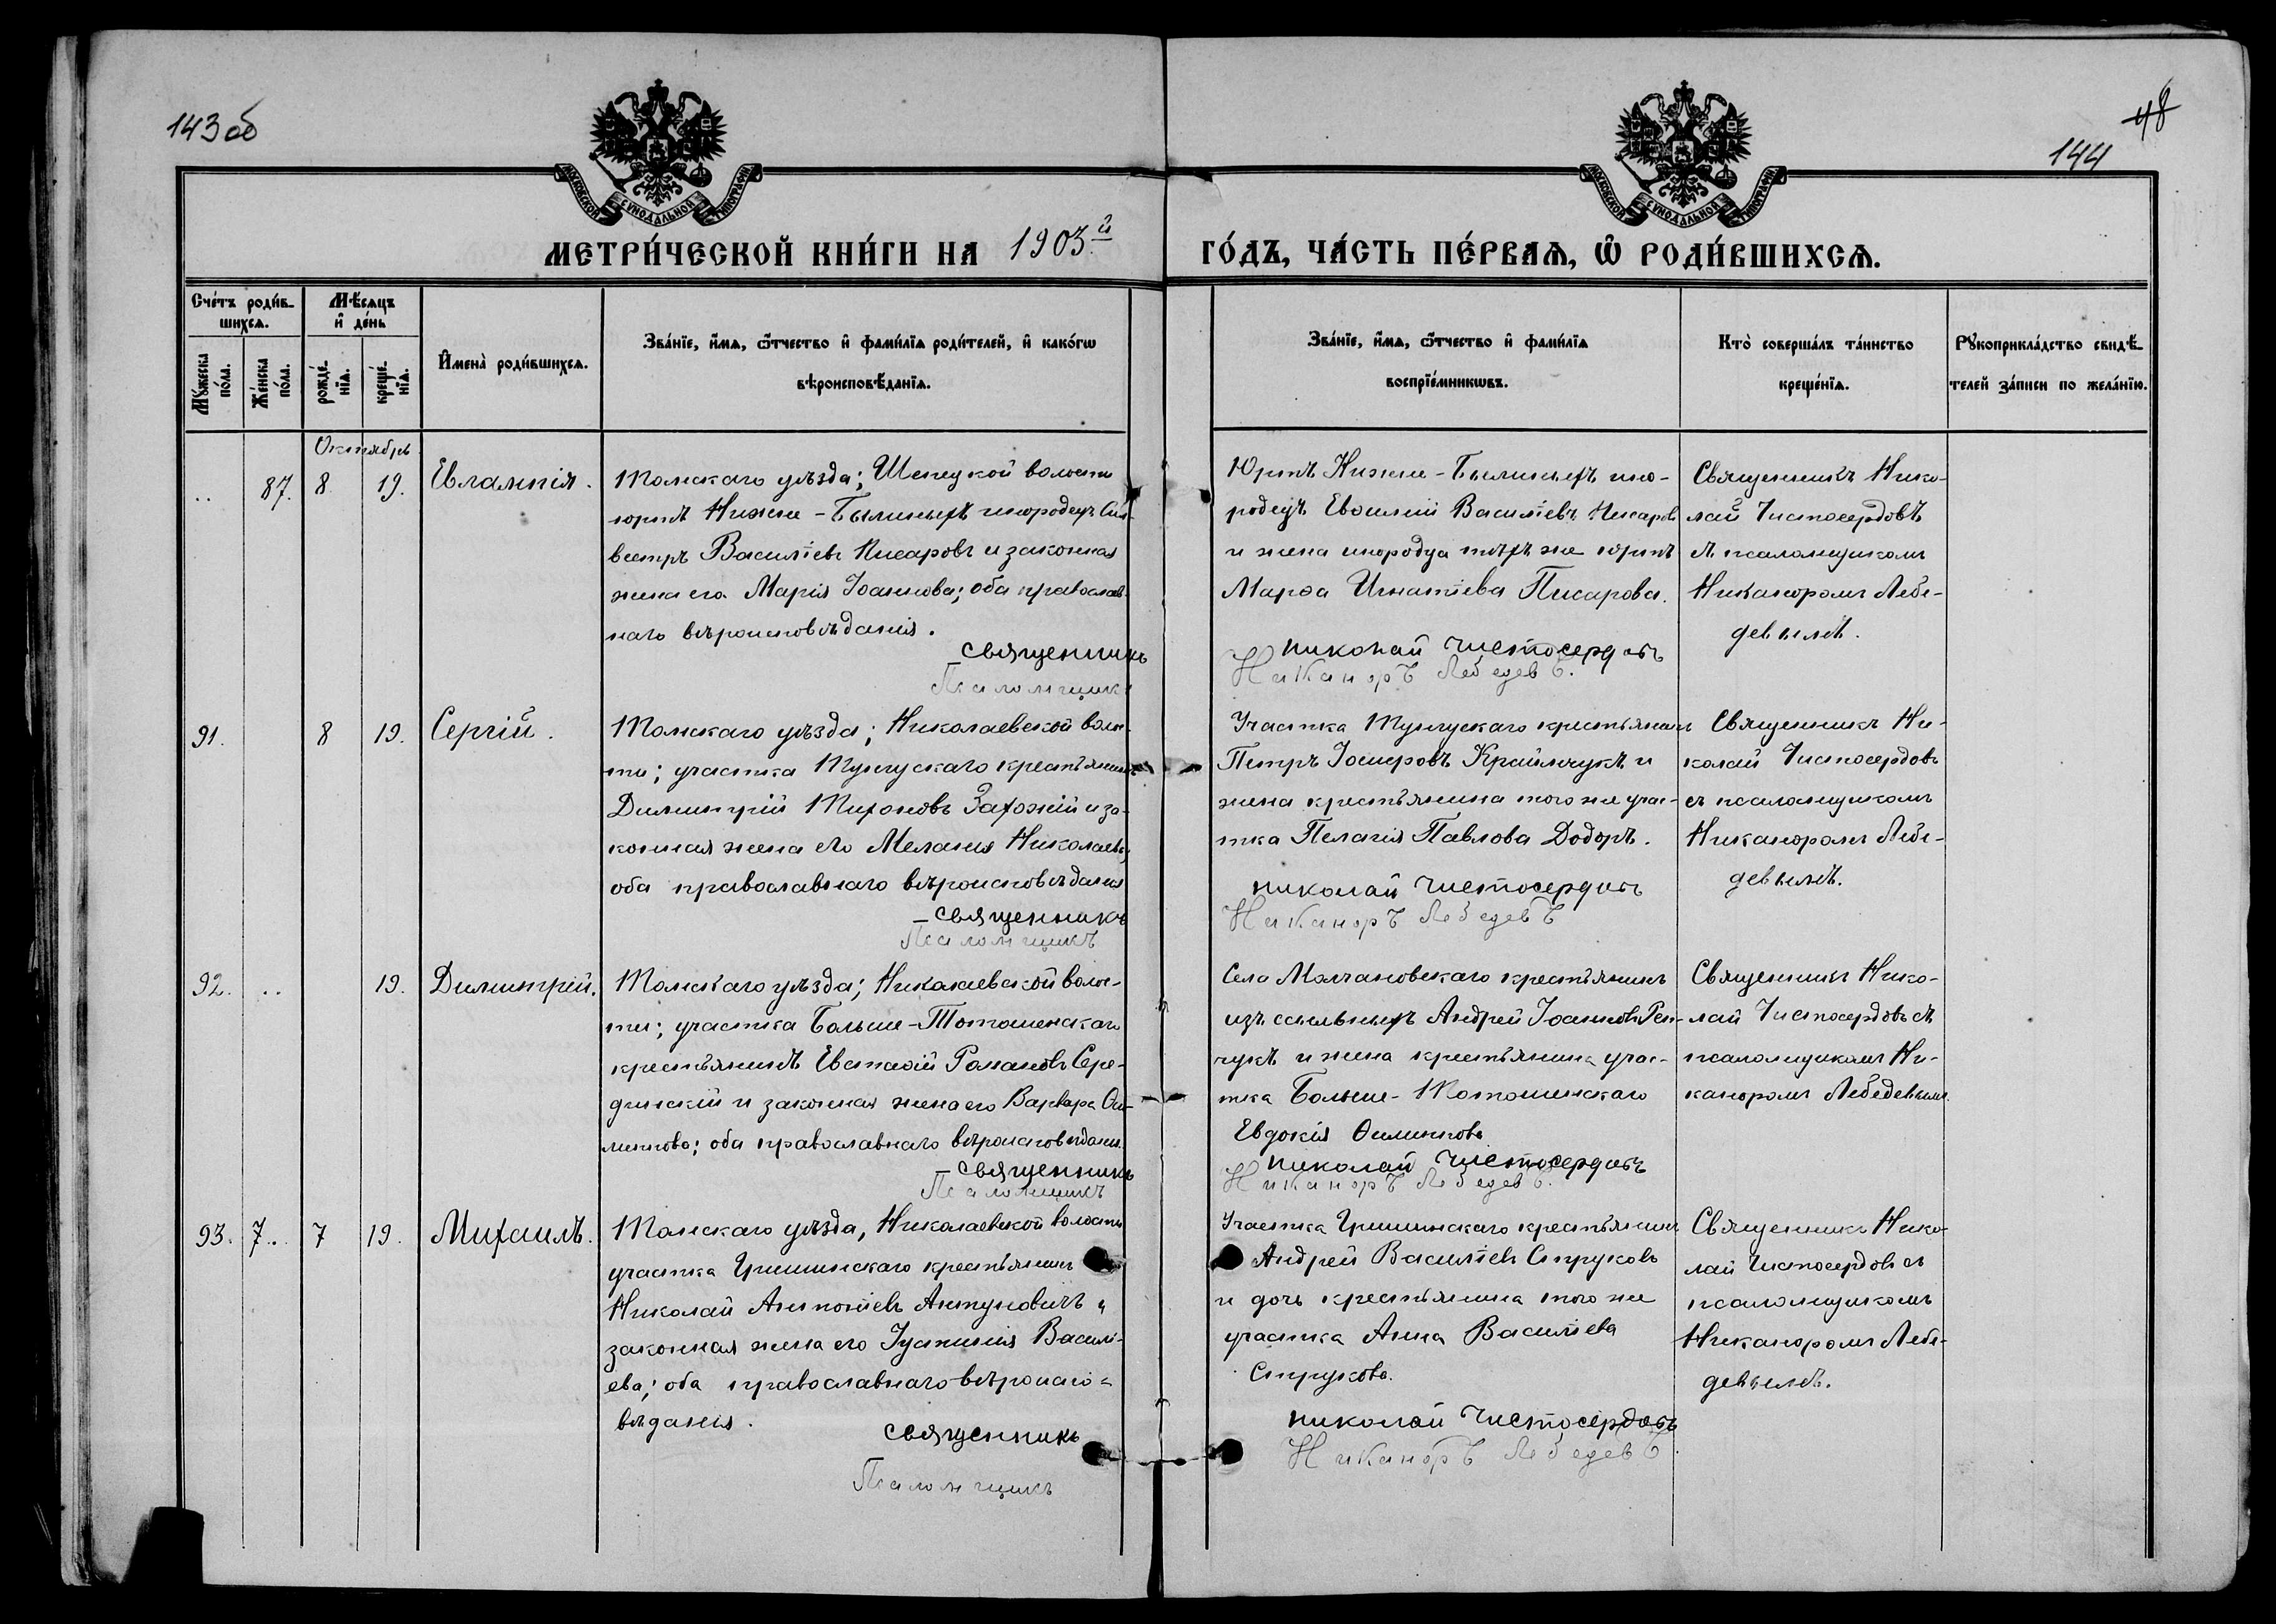 143 об
48
144
МОСКОВСКОЙ СѴНОДАЛЬНОЙ ТИПОГРАФІИ
МОСКОВСКОЙ СѴНОДАЛЬНОЙ ТИПОГРАФІИ
МЕТРИ́ЧЕСКОЙ КНИ́ГИ НА 1903й
ГО́ДЪ, ЧА́СТЬ ПЕ́РВАѦ, Ѽ РОДИ́ВШИХСѦ.
Сче́тъ роди́в-
шихсѧ.
Мѣ́сѧцъ
и҆ де́нь
Мꙋ́жеска
по́ла.
Же́нска
по́ла.
рожде́-
нїѧ.
креще́-
нїѧ.
И҆мена̀ роди́вшихсѧ.
Зва́нїе, и҆́мѧ, ѻ҆́тчество и҆ фами́лїѧ роди́телей, и҆ како́гѡ
вѣроисповѣ́данїѧ.
Зва́нїе, и҆́мѧ, ѻ҆́тчество и҆ фами́лїѧ
воспрїе́мникѡвъ.
Кто̀ соверша́лъ та́инство
креще́нїѧ.
Рꙋкоприкла́дство свидѣ́-
телей за́писи по жела́нїю.
Октябрь
.. 87. 8 19. Евлампія.
Томскаго уѣзда; Шепецкой волости
юртъ Нижне-Былиныхъ инородецъ Сил-
вестръ Василіевъ Писаровъ и законная
жена его Марія Іоаннова; оба православ-
наго вѣроисповѣданія.
Священникъ
Псаломщикъ
Юртъ Нижне-Былиныхъ ино-
родецъ Евсилій Василіевъ Писаровъ
и жена инородца тѣхъ же юртъ
Марѳа Игнатіева Писарова.
Николай Чистосердовъ
Никаноръ Лебедевъ.
Священникъ Нико-
лай Чистосердовъ
съ псаломщикомъ
Никаноромъ Лебе-
девымъ.
91. 8 19. Сергій.
Томскаго уѣзда; Николаевской волос-
ти; участка Тунгускаго крестьянинъ
Димитрій Тихоновъ Захожій и за-
конная жена его Меланія Николаева;
оба православнаго вѣроисповѣданія
Священникъ
Псаломщикъ
Участка Тунгускаго крестьянинъ
Петръ Іосифовъ Крайльчукъ и
жена крестьянина того же учас-
тка Пелагія Павлова Додоръ.
Николай Чистосердовъ
Никаноръ Лебедевъ
Священникъ Ни-
колай Чистосердовъ
съ псаломщикомъ
Никаноромъ Лебе-
девымъ.
92. .. 19. Димитрій.
Томскаго уѣзда; Николаевской волос-
ти; участка Больше-Тотошенскаго
крестьянинъ Евстаѳій Романовъ Сере-
динскій и законная жена его Варвара Ѳи-
липпова; оба православнаго вѣроисповѣданія.
Священникъ
Псаломщикъ
Села Молчановскаго крестьянинъ
изъ ссыльныхъ Андрей Іоанновъ Рен-
чукъ и жена крестьянина учас-
тка Больше-Тотошинскаго
Евдокія Ѳилиппова
Николай Чистосердовъ
Никаноръ Лебедевъ.
Священникъ Нико-
лай Чистосердовъ съ
псаломщикомъ Ни-
каноромъ Лебедевымъ.
93. 7.. 7 19. Михаилъ.
Томскаго уѣзда, Николаевской волости
участка Гришинскаго крестьянинъ
Николай Антоніевъ Антуновичъ и
законная жена его Іустинія Василі-
ева; оба православнаго вѣроиспо-
вѣданія.
Священникъ
Псаломщикъ
Участка Гришинскаго крестьянинъ
Андрей Василіевъ Струковъ
и дочь крестьянина того же
участка Анна Василіева
Струкова.
Николай Чистосердовъ
Никаноръ Лебедевъ.
Священникъ Нико-
лай Чистосердовъ съ
псаломщикомъ
Никаноромъ Лебе-
девымъ.